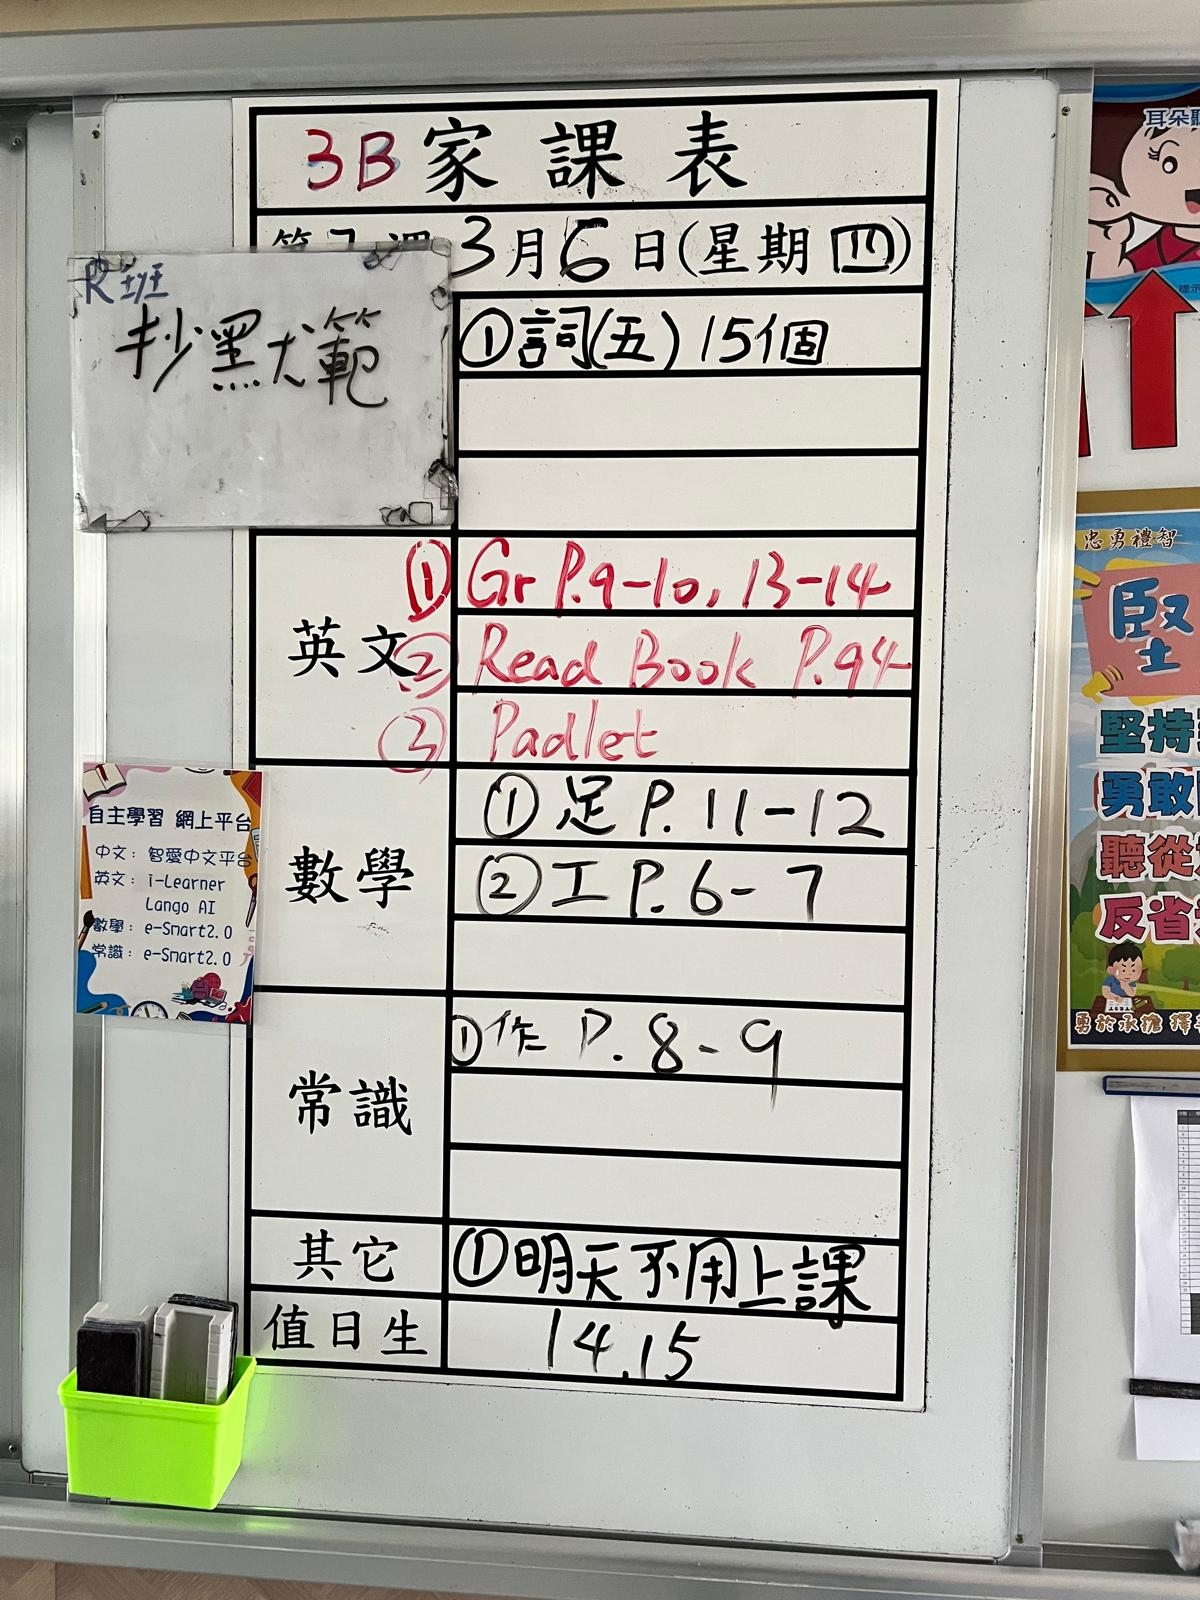 3B 家課表
3月6日(星期四)
R班
抄默範
①詞(五) 15個
英文
① Gr P.9-10, 13-14
② Read Book P.94
③ Padlet
數學
① 足 P. 11-12
② 工 P. 6-7
常識
①作 P. 8-9
其它
①明天不用上課
值日生
14, 15
自主學習 網上平台
中文: 智愛中文平台
英文: i-Learner
Lango AI
數學: e-Smart2.0
常識: e-Smart2.0
耳朵
忠勇禮智
堅
堅持
勇敢
聽從
反省
勇於承擔